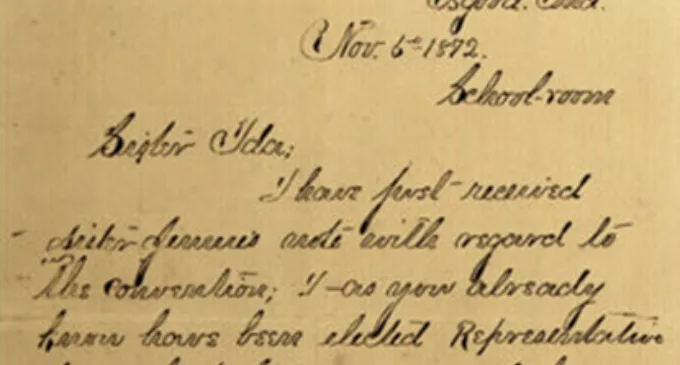 Osgood. Ind.
Nov. 6th 1872.
School-room
Sister Ida;
I have just received
sister Jennie's note with regard to
the convention; I-as you already
know have been elected Representative